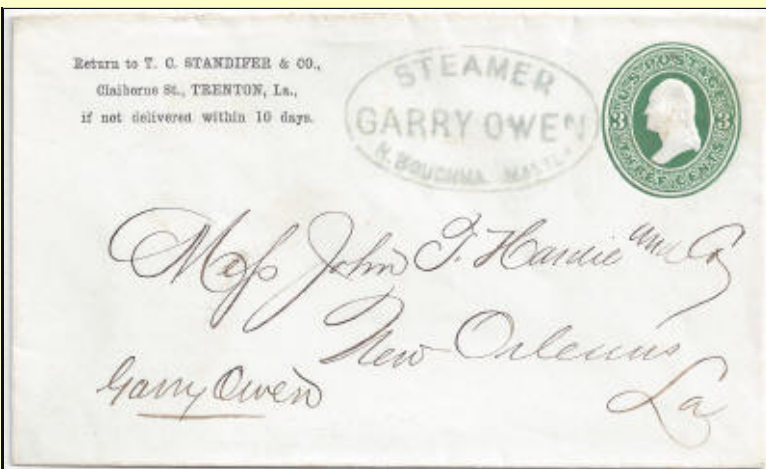 Return to T. C. STANDIFER & CO.,
Claiborne St., TRENTON, La.,
if not delivered within 10 days.
STEAMER
GARRY OWEN
U.S. POSTAGE
3 3
THREE CENTS
Mess John T. Hardie and Co
New Orleans
Garry Owen
La